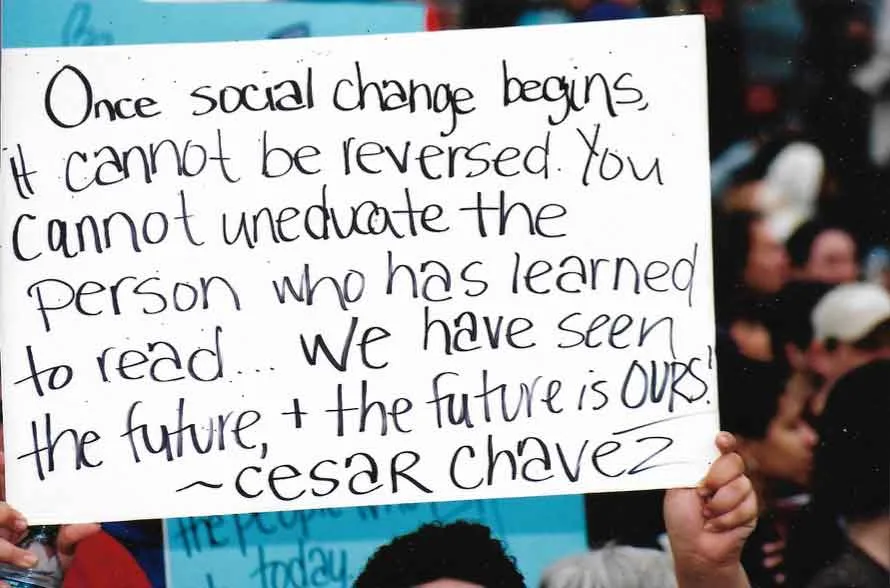 Once social change begins,
it cannot be reversed. You
cannot uneducate the
person who has learned
to read... We have seen
the future, + the future is OURS!
~ Cesar Chavez
the people
today